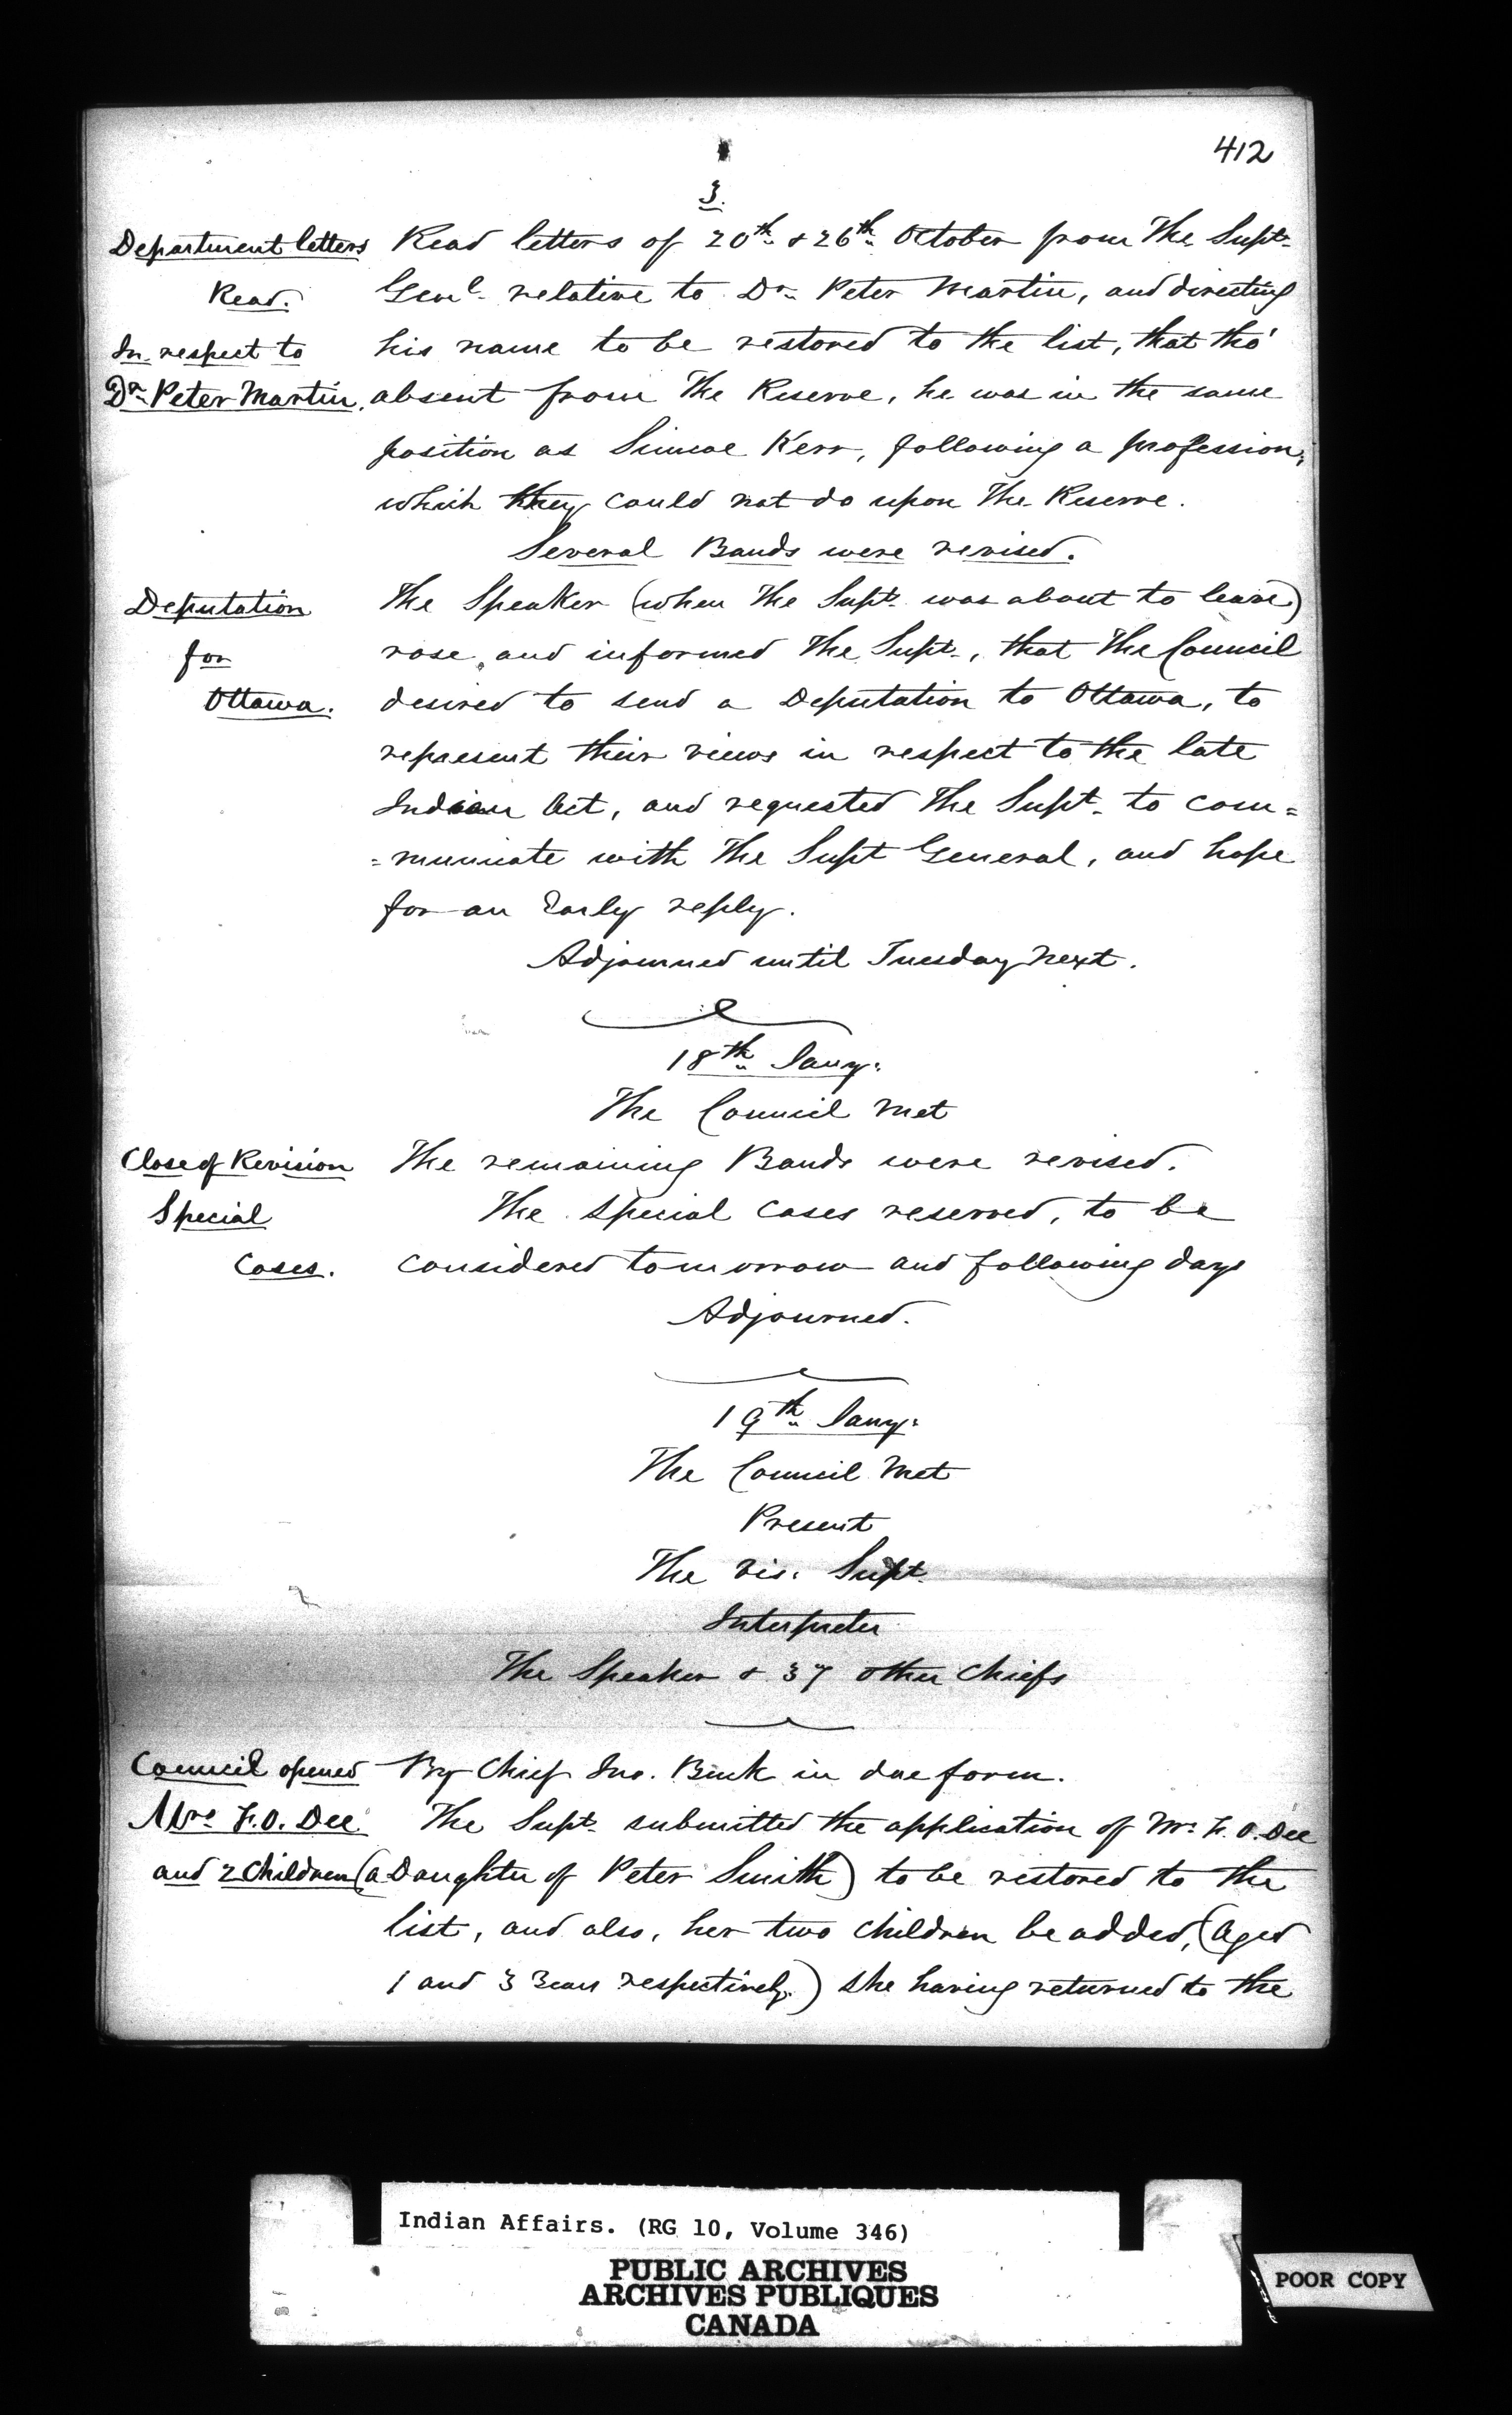 412
3.
Department letters Read letters of 20th & 26th October from The Supt.
Read. Genl. relative to Dr. Peter Martin, and directing
In respect to his name to be restored to the list, that tho'
Dr. Peter Martin, absent from The Reserve, he was in the same
position as Simcoe Kerr, following a profession,
which they could not do upon The Reserve.
Several Bands were revised.
Deputation The Speaker (when The Supt. was about to leave)
for rose, and informed The Supt., that The Council
Ottawa. desired to send a Deputation to Ottawa, to
represent their views in respect to the late
Indian Act, and requested The Supt. to com=
=municate with The Supt General, and hope
for an Early reply.
Adjourned until Tuesday next.
18th Jany:
The Council met
Close of Revision The remaining Bands were revised.
Special The special cases reserved, to be
Cases. considered tomorrow and following days
Adjourned.
19th Jany:
The Council met
Present
The Vis. Supt.
Interpreter
The Speaker & 37 other Chiefs
Council opened By Chief Jno. Buck in due form.
Mrs F.O. Dee The Supt. submitted the application of Mrs F. O. Dee
and 2 Children (a Daughter of Peter Smith) to be restored to the
list, and also, her two children be added, (aged
1 and 3 Years respectively.) she having returned to the
Indian Affairs. (RG 10, Volume 346)
PUBLIC ARCHIVES
ARCHIVES PUBLIQUES
CANADA
POOR COPY